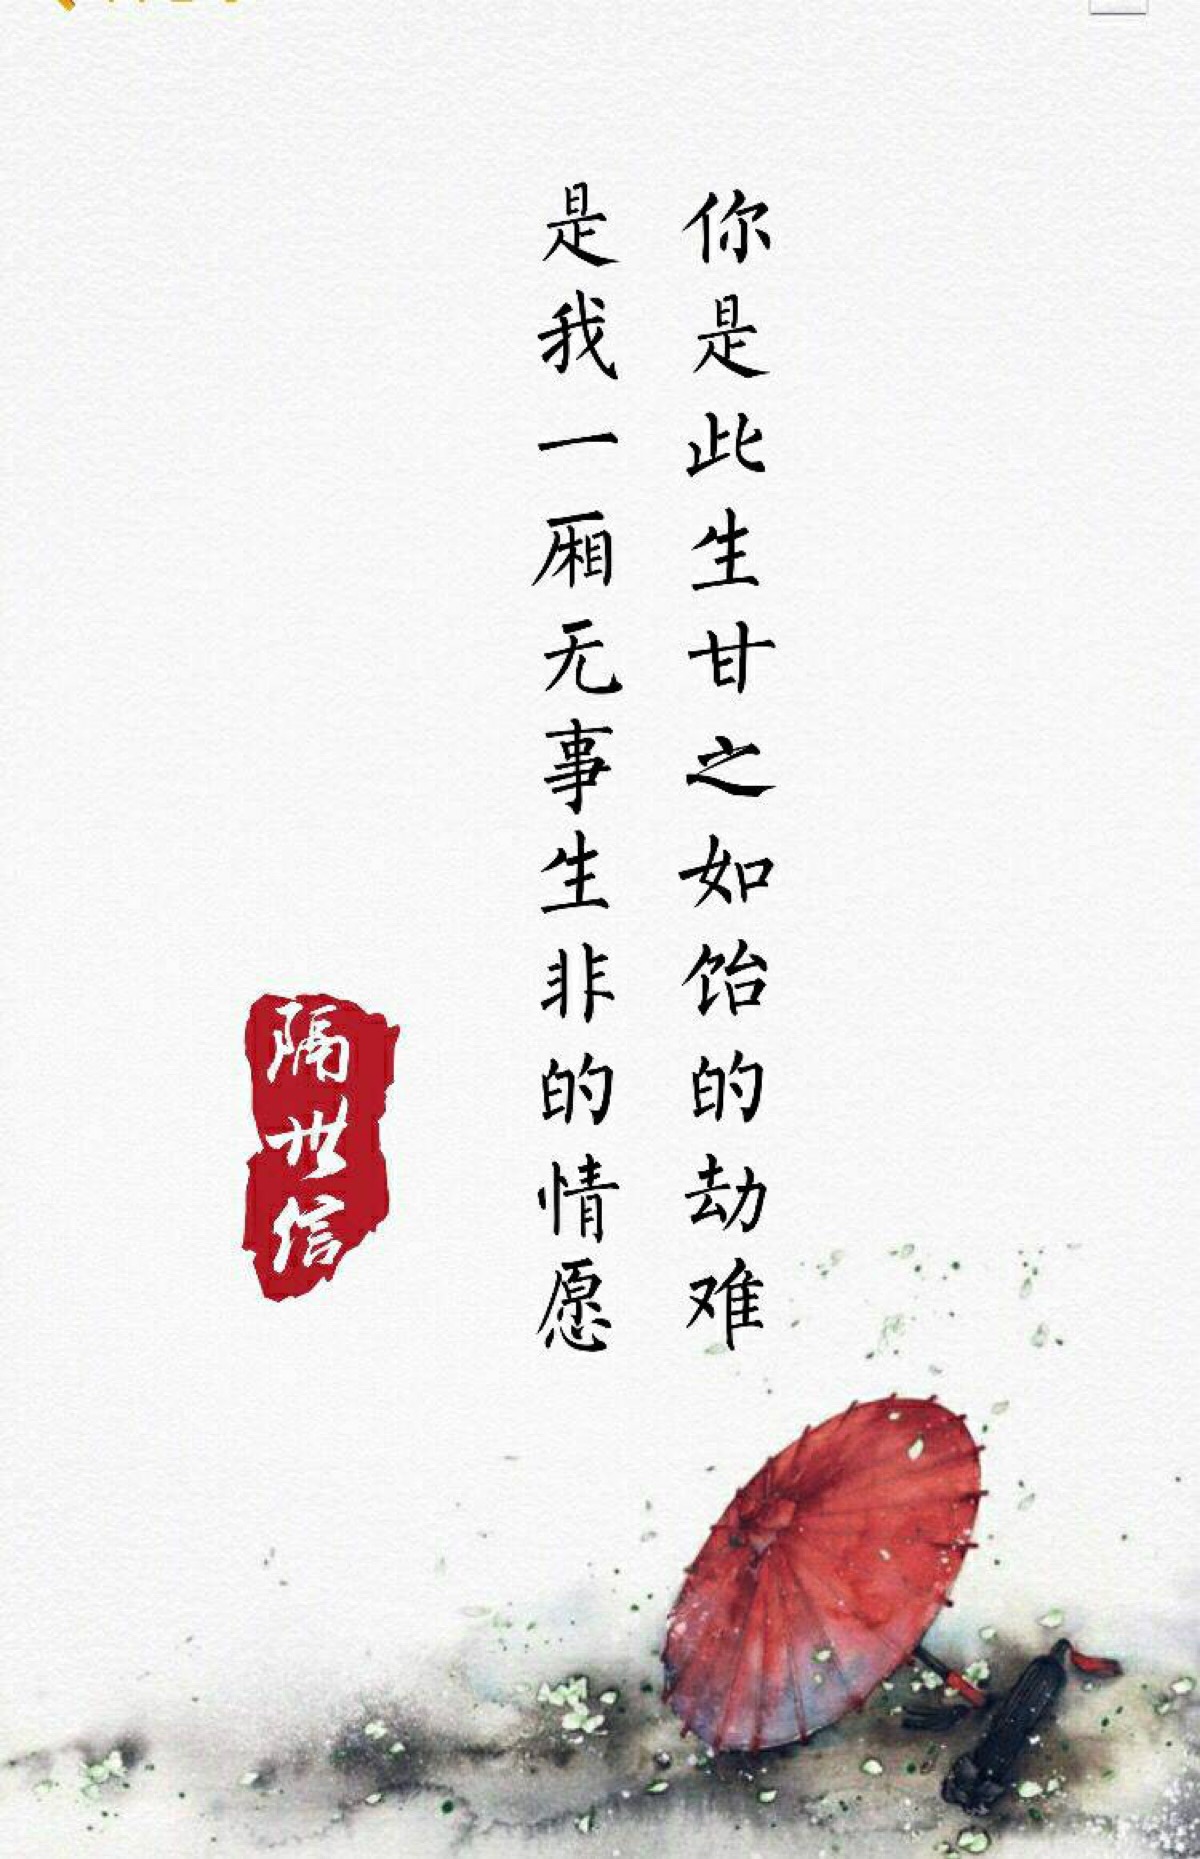 你是此生甘之如饴的劫难
是我一厢无事生非的情愿
隔世信